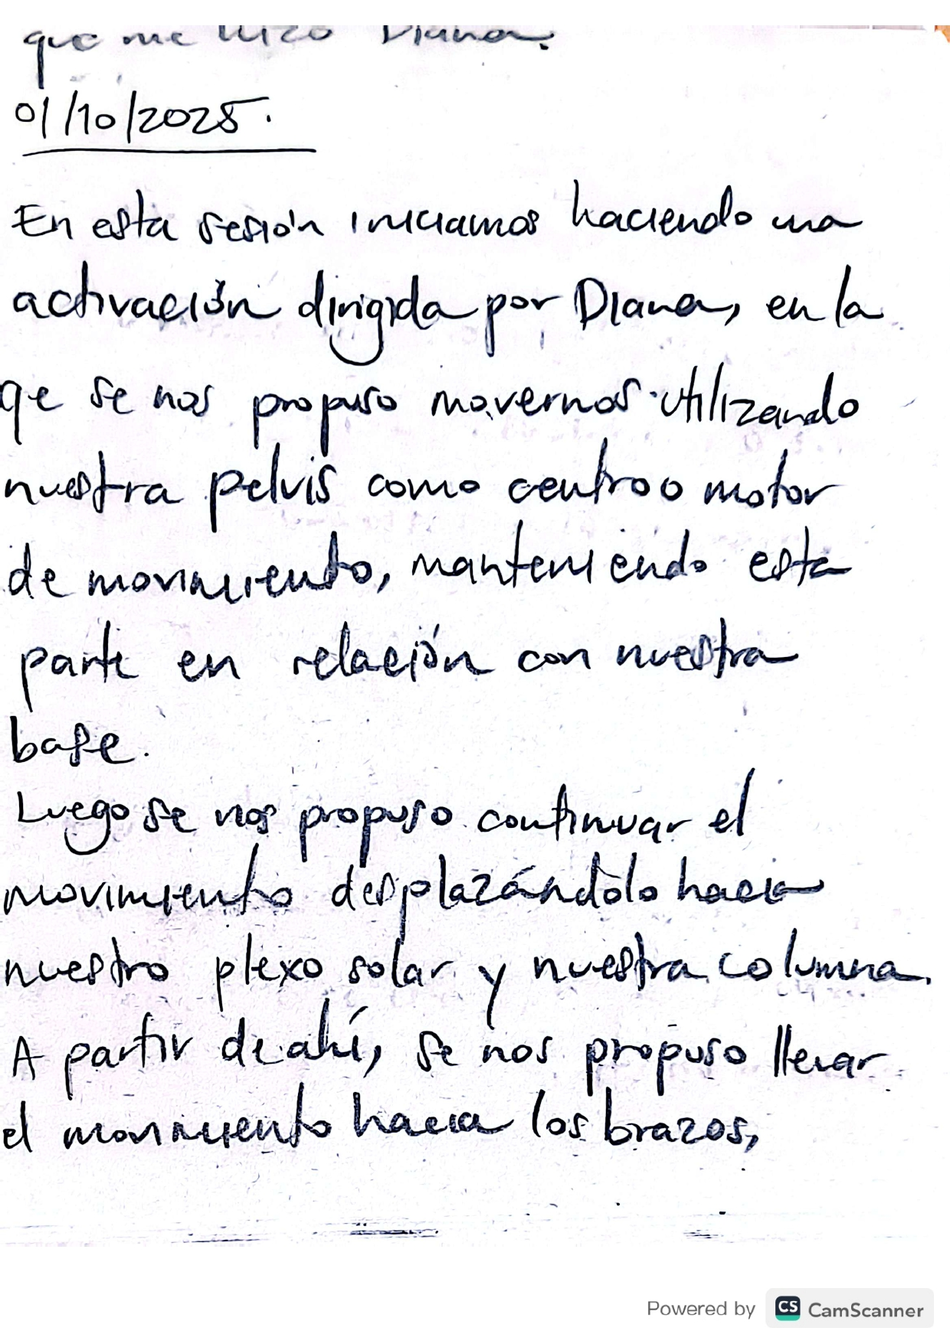 que me hizo Diana.
01/10/2025.
En esta sesión iniciamos haciendo una
activación dirigida por Diana, en la
qe se nos propuso movernos utilizando
nuestra pelvis como centro o motor
de movimiento, manteniendo esta
parte en relación con nuestra
base.
Luego se nos propuso continuar el
movimiento desplazándolo hacia
nuestro plexo solar y nuestra columna.
A partir de ahí, se nos propuso llevar
el movimiento hacia los brazos,
Powered by CS CamScanner